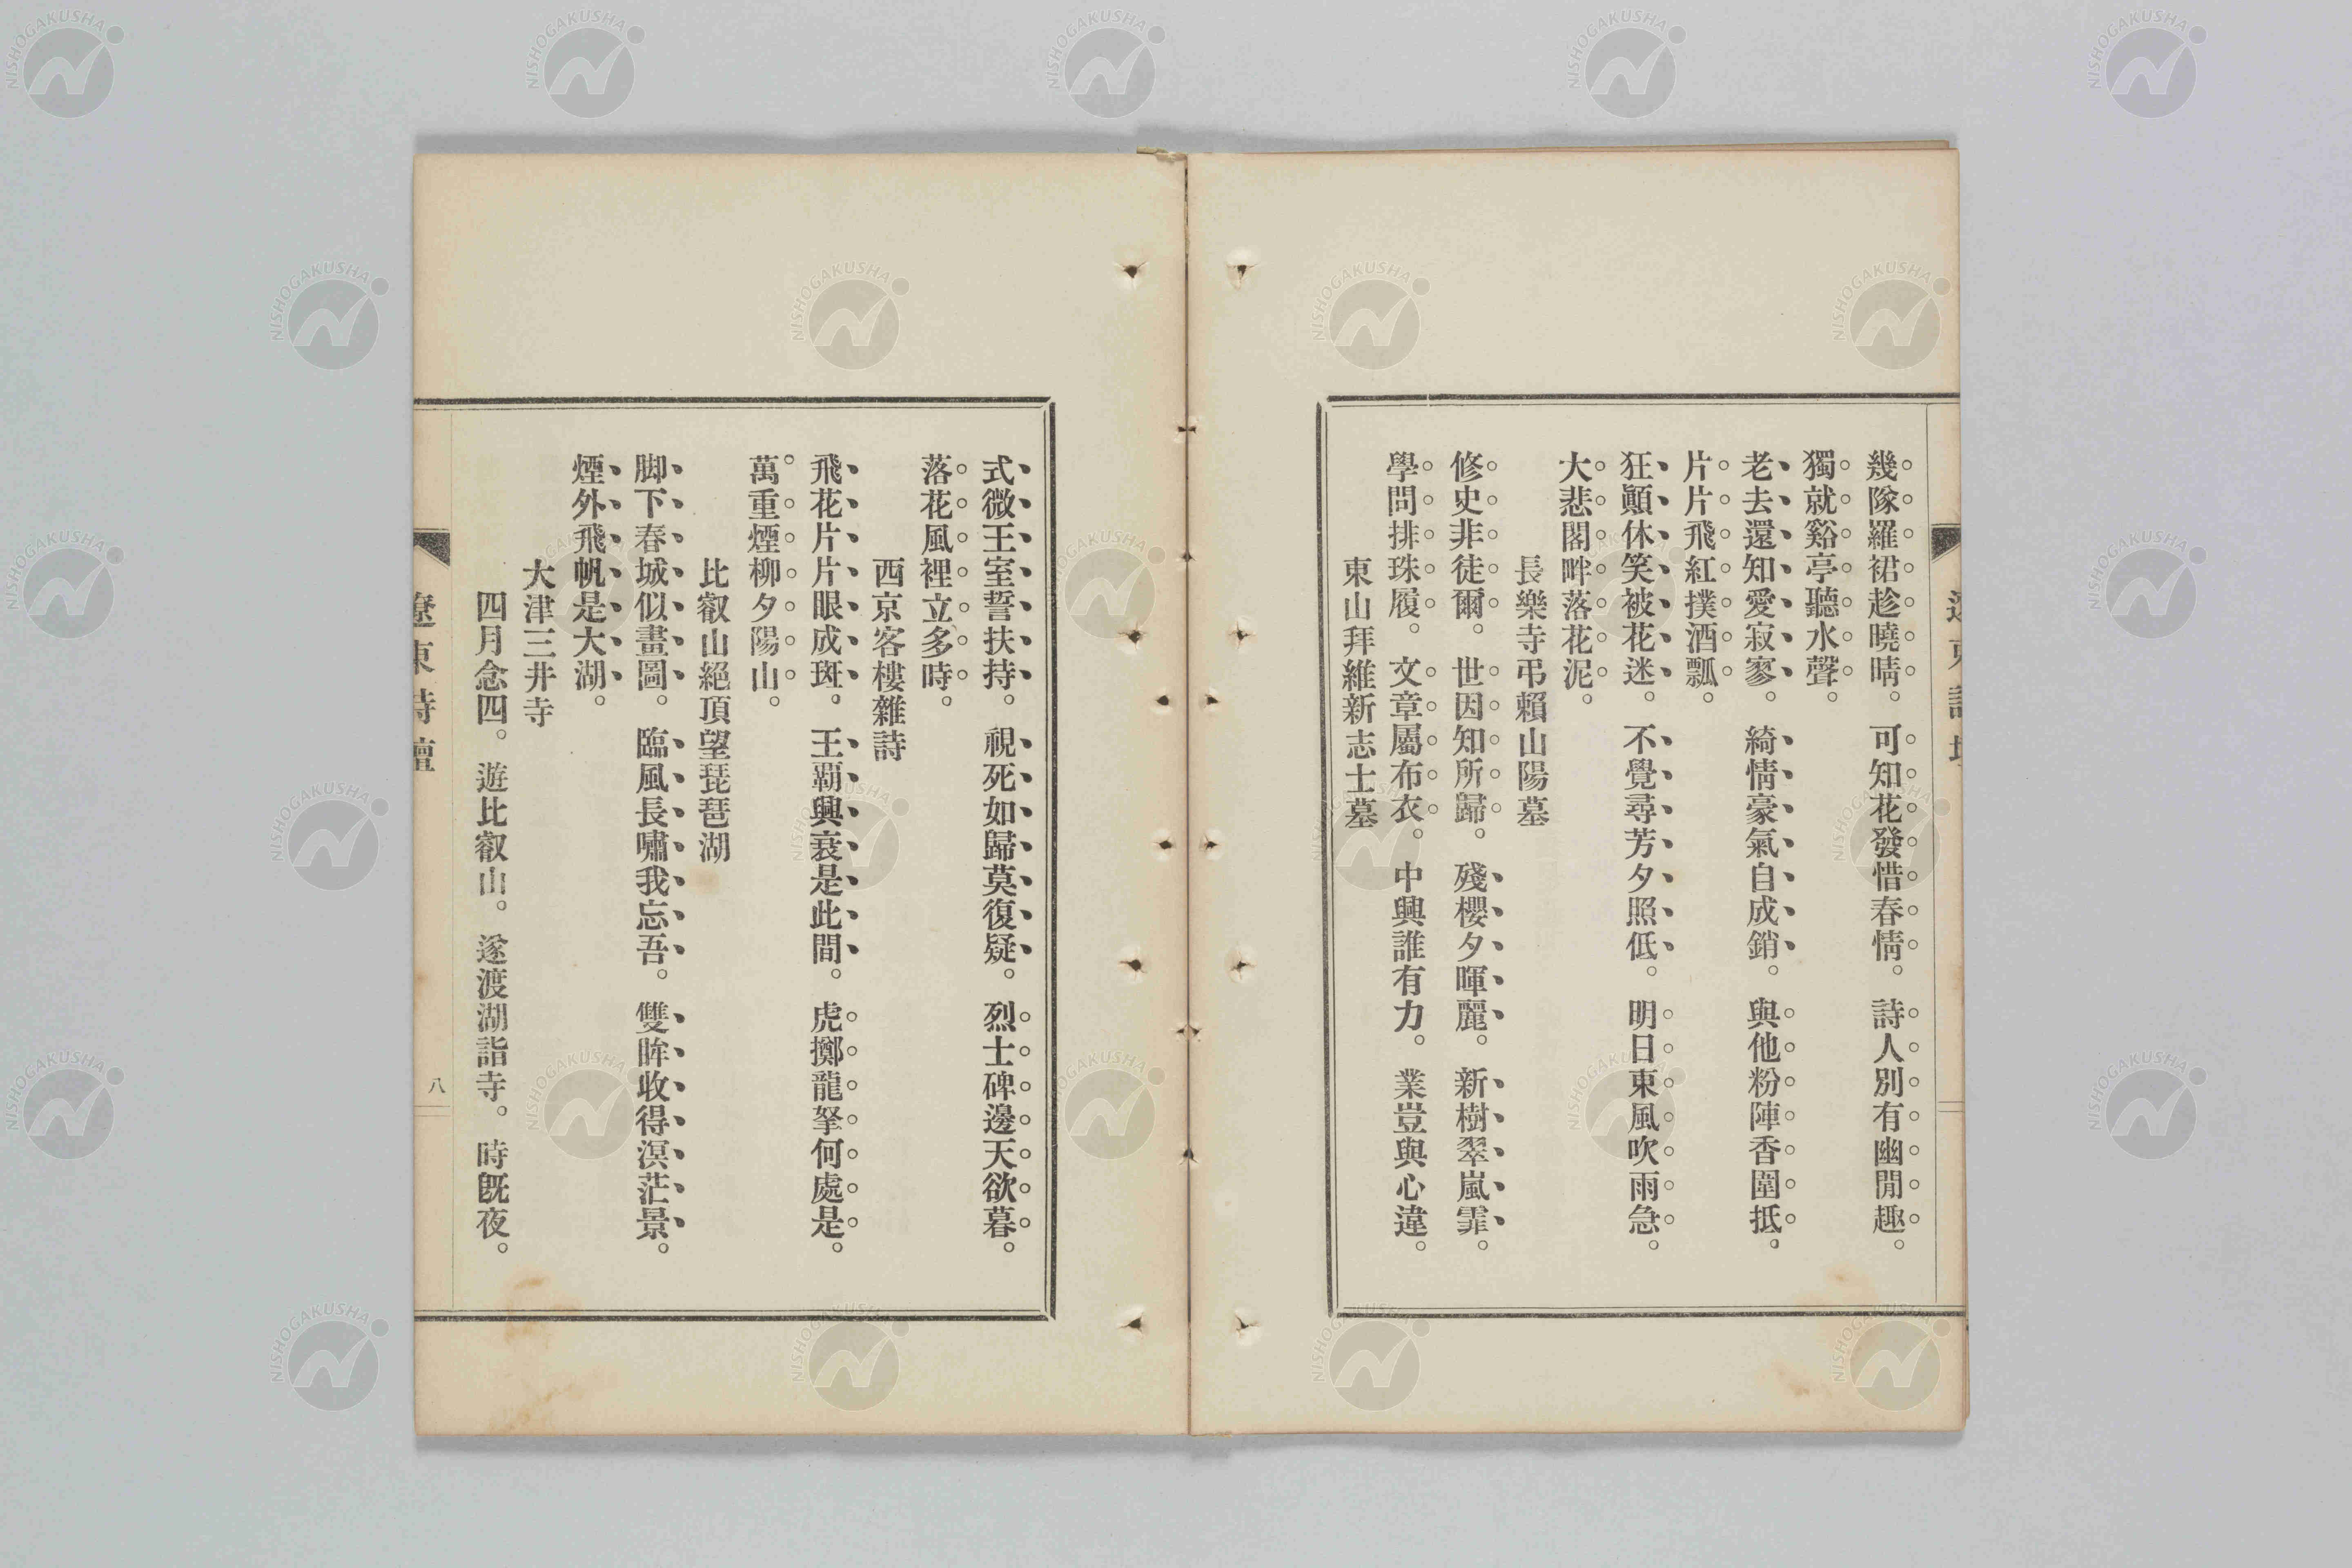 幾隊羅裙趁曉晴。可知花發惜春情。詩人別有幽閒趣。
獨就谿亭聽水聲。
老去還知愛寂寥。綺情豪氣自成銷。與他粉陣香圍抵。
片片飛紅撲酒瓢。
狂顚休笑被花迷。不覺尋芳夕照低。明日東風吹雨急。
大悲閣畔落花泥。
長樂寺弔賴山陽墓
修史非徒爾。世因知所歸。殘櫻夕暉麗。新樹翠嵐霏。
學問排珠履。文章屬布衣。中興誰有力。業豈與心違。
東山拜維新志士墓
式微王室誓扶持。視死如歸莫復疑。烈士碑邊天欲暮。
落花風裡立多時。
西京客樓雜詩
飛花片片眼成斑。王覇興衰是此間。虎擲龍拏何處是。
萬重煙柳夕陽山。
比叡山絕頂望琵琶湖
脚下春城似畫圖。臨風長嘯我忘吾。雙眸收得溟茫景。
煙外飛帆是大湖。
大津三井寺
四月念四。遊比叡山。遂渡湖詣寺。時既夜。
遼東詩壇
八
NISHOGAKUSHA